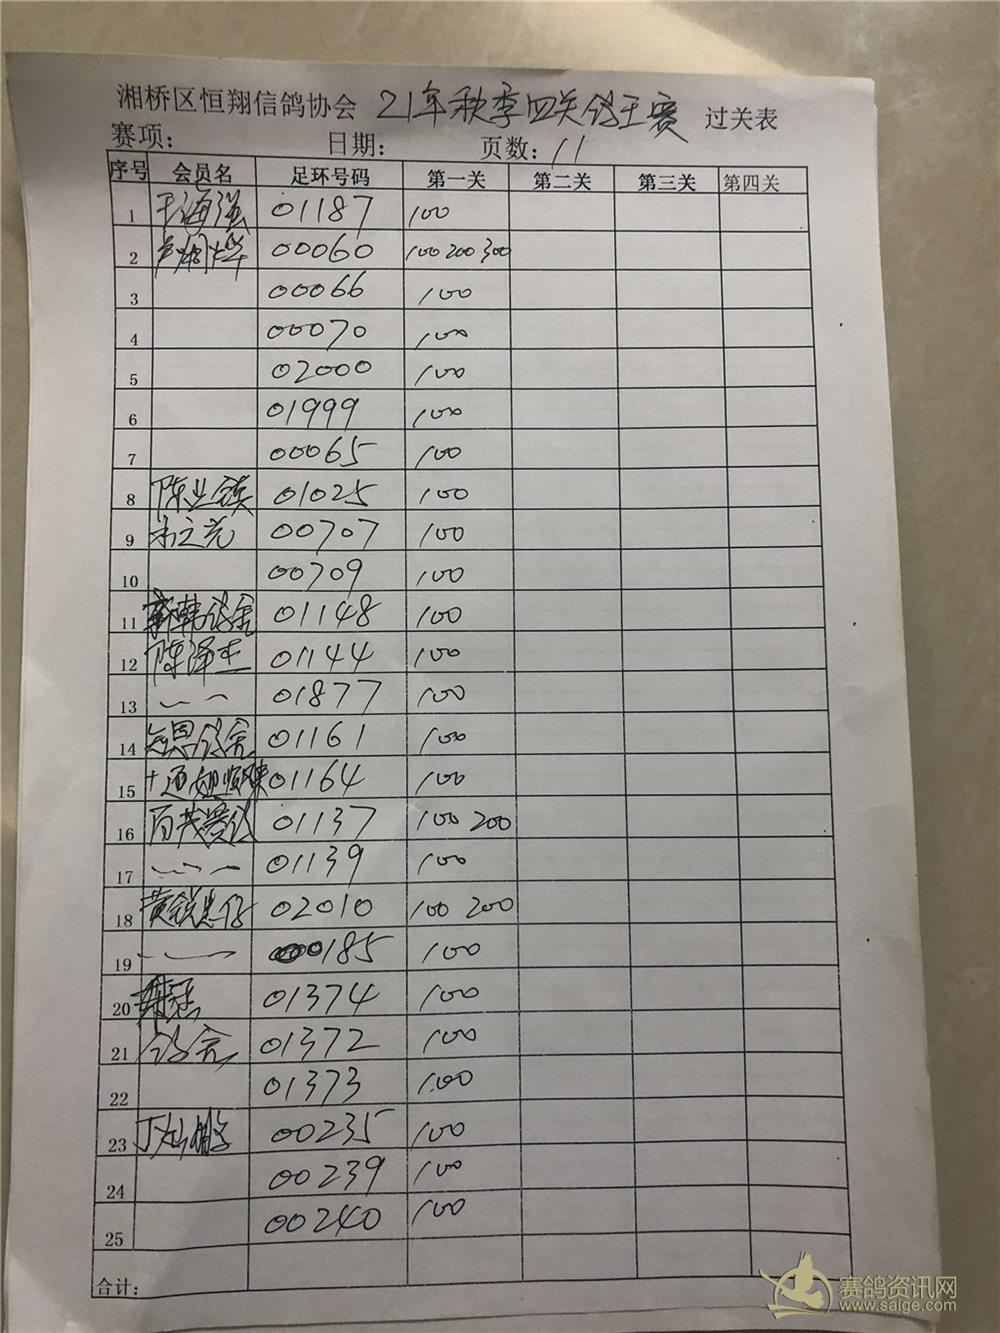 湘桥区恒翔信鸽协会 21年秋季四关鸽王赛 过关表
赛项: 日期: 页数: 11
序号 会员名 足环号码 第一关 第二关 第三关 第四关
1 王海强 01187 100
2 00060 100 200 300
3 00066 100
4 00070 100
5 02000 100
6 01999 100
7 00065 100
8 陈业镇 01025 100
9 00707 100
10 00709 100
11 新韩鸽舍 01148 100
12 陈泽杰 01144 100
13 01877 100
14 鸽舍 01161 100
15 01164 100
16 百茂赛鸽 01137 100 200
17 01139 100
18 02010 100 200
19 00185 100
20 01374 100
21 鸽舍 01372 100
22 01373 100
23 丁灿鹏 00235 100
24 00239 100
25 00240 100
合计:
赛鸽资讯网
www.saige.com